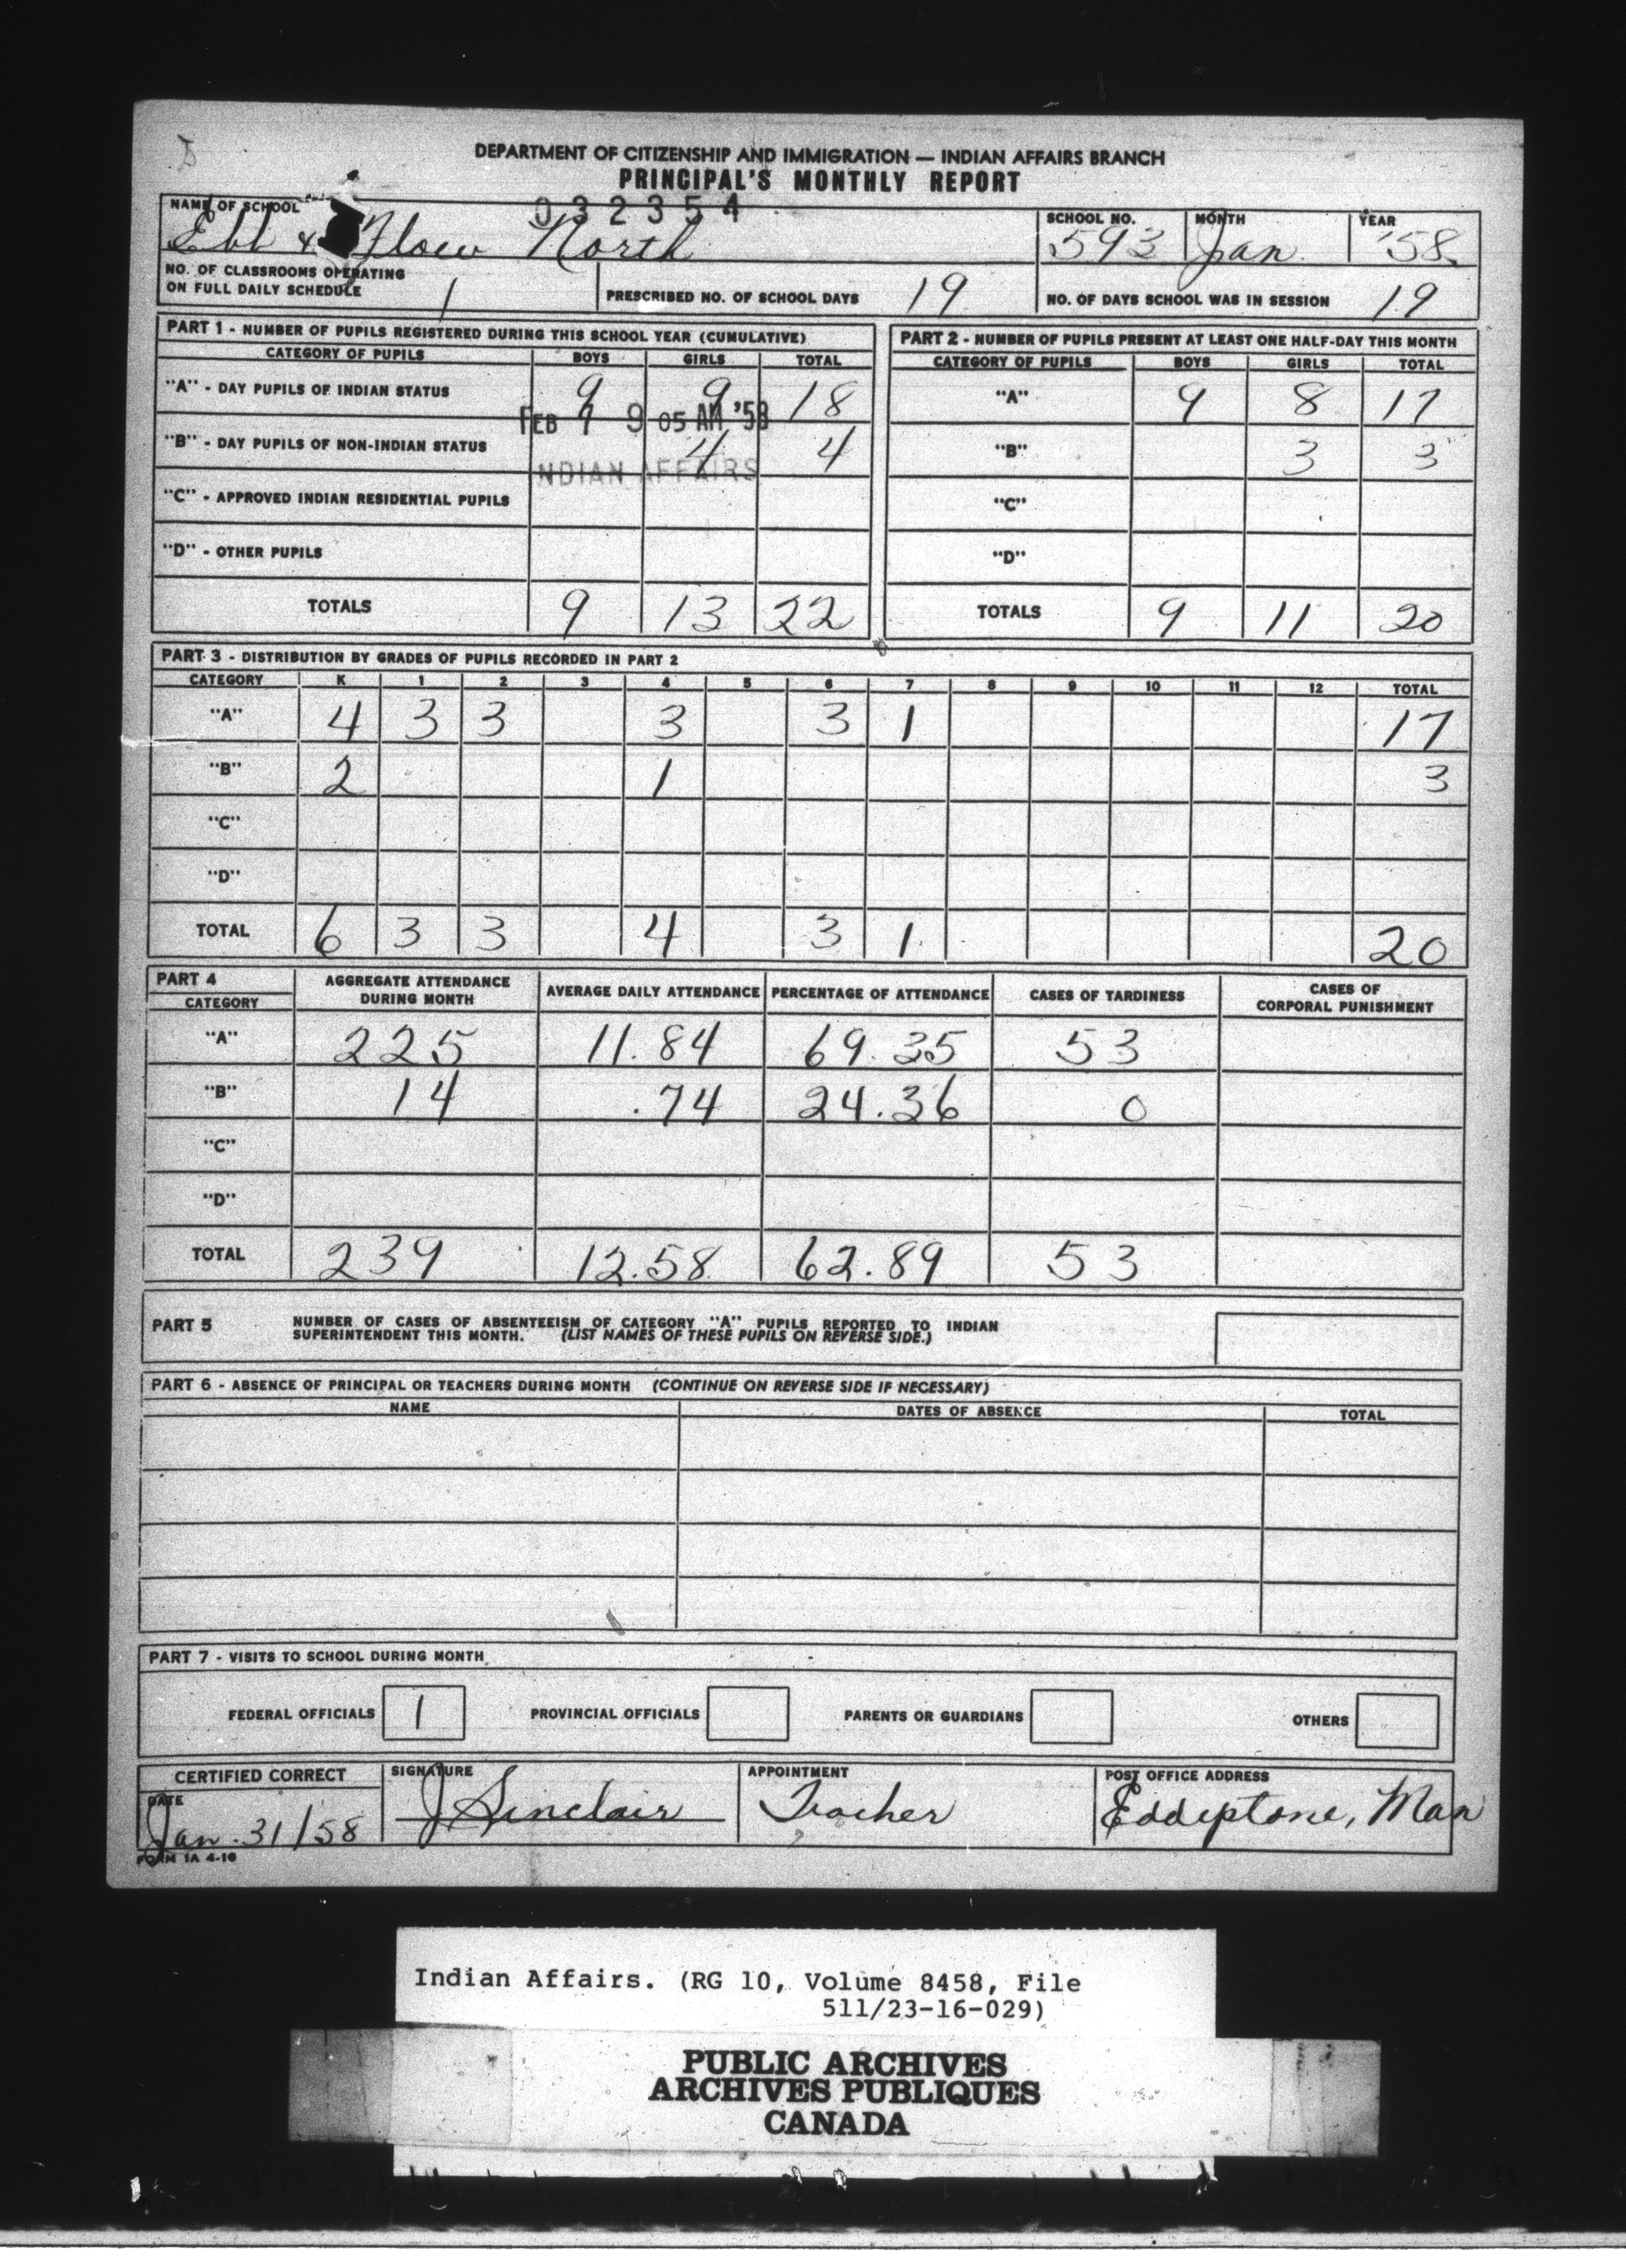 DEPARTMENT OF CITIZENSHIP AND IMMIGRATION — INDIAN AFFAIRS BRANCH
PRINCIPAL'S MONTHLY REPORT
032354
NAME OF SCHOOL Ebb & Flow North SCHOOL NO. 593 MONTH Jan. YEAR '58.
NO. OF CLASSROOMS OPERATING ON FULL DAILY SCHEDULE 1 PRESCRIBED NO. OF SCHOOL DAYS 19 NO. OF DAYS SCHOOL WAS IN SESSION 19
PART 1 - NUMBER OF PUPILS REGISTERED DURING THIS SCHOOL YEAR (CUMULATIVE)
CATEGORY OF PUPILS BOYS GIRLS TOTAL
"A" - DAY PUPILS OF INDIAN STATUS 9 9 18
FEB 7 9 05 AM '58
"B" - DAY PUPILS OF NON-INDIAN STATUS 4 4
INDIAN AFFAIRS
"C" - APPROVED INDIAN RESIDENTIAL PUPILS
"D" - OTHER PUPILS
TOTALS 9 13 22
PART 2 - NUMBER OF PUPILS PRESENT AT LEAST ONE HALF-DAY THIS MONTH
CATEGORY OF PUPILS BOYS GIRLS TOTAL
"A" 9 8 17
"B" 3 3
"C"
"D"
TOTALS 9 11 20
PART 3 - DISTRIBUTION BY GRADES OF PUPILS RECORDED IN PART 2
CATEGORY K 1 2 3 4 5 6 7 8 9 10 11 12 TOTAL
"A" 4 3 3 3 3 1 17
"B" 2 1 3
"C"
"D"
TOTAL 6 3 3 4 3 1 20
PART 4
CATEGORY AGGREGATE ATTENDANCE DURING MONTH AVERAGE DAILY ATTENDANCE PERCENTAGE OF ATTENDANCE CASES OF TARDINESS CASES OF CORPORAL PUNISHMENT
"A" 225 11.84 69.35 53
"B" 14 .74 24.36 0
"C"
"D"
TOTAL 239 12.58 62.89 53
PART 5 NUMBER OF CASES OF ABSENTEEISM OF CATEGORY "A" PUPILS REPORTED TO INDIAN
SUPERINTENDENT THIS MONTH. (LIST NAMES OF THESE PUPILS ON REVERSE SIDE.)
PART 6 - ABSENCE OF PRINCIPAL OR TEACHERS DURING MONTH (CONTINUE ON REVERSE SIDE IF NECESSARY)
NAME DATES OF ABSENCE TOTAL
PART 7 - VISITS TO SCHOOL DURING MONTH
FEDERAL OFFICIALS 1 PROVINCIAL OFFICIALS PARENTS OR GUARDIANS OTHERS
CERTIFIED CORRECT SIGNATURE APPOINTMENT POST OFFICE ADDRESS
DATE Jan. 31/58 J Sinclair Teacher Eddystone, Man
FORM 1A 4-16
Indian Affairs. (RG 10, Volume 8458, File
511/23-16-029)
PUBLIC ARCHIVES
ARCHIVES PUBLIQUES
CANADA